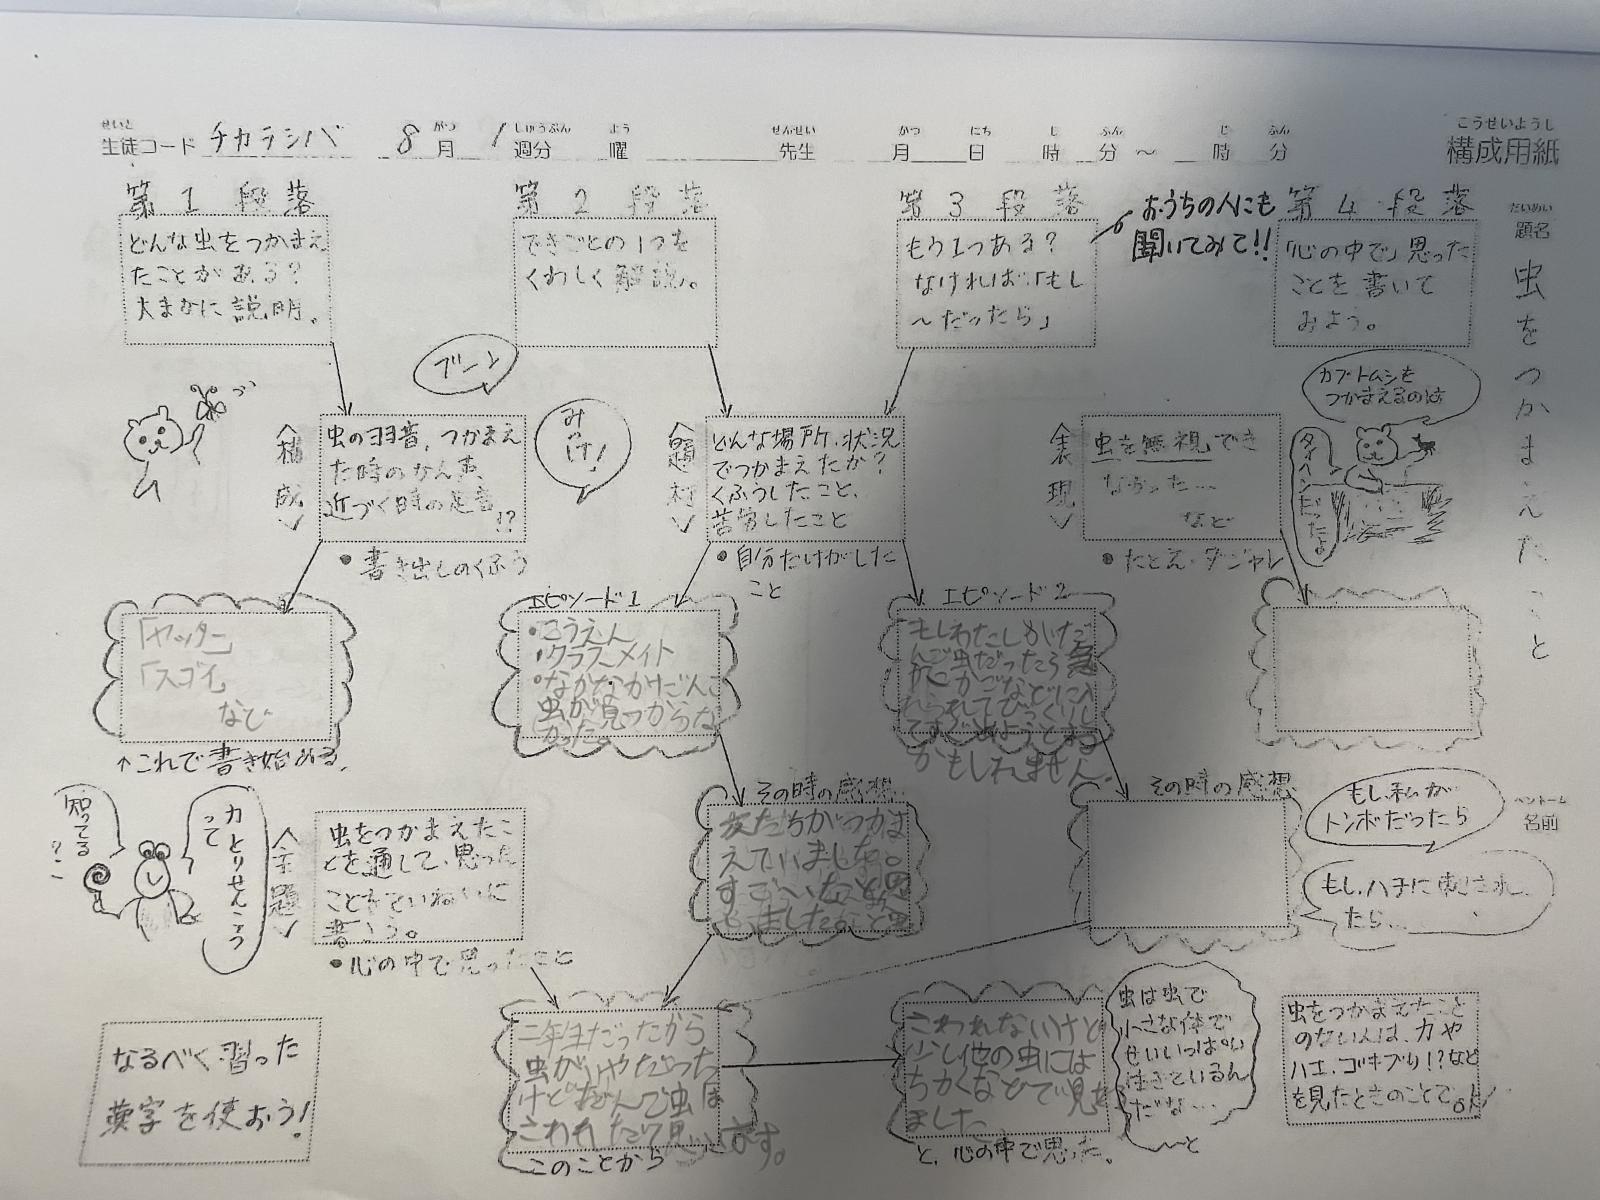 せいと
生徒コード チカラシバ 8 がつ 月 1 しゅうぶん 週分 よう 曜 せんせい 先生 がつ 月 にち 日 じ 時 ふん 分 ～ じ 時 ふん 分
こうせいようし
構成用紙
だいめい
題名
虫をつかまえたこと
ペンネーム
名前
第1段落
どんな虫をつかまえ
たことがある?
大まかに説明。
第2段落
できごとの1つを
くわしく解説。
第3段落
もう1つある?
なければ「もし
～だったら」
おうちの人にも
聞いてみて!!
第4段落
「心の中で」思った
ことを書いて
みよう。
ブーン
みっけ!
カブトムシを
つかまえるのは
タイヘンだったよ
〈構成〉
虫の羽音、つかまえ
た時のかん声
近づく時の足音
!?
●書き出しのくふう
〈題材〉
どんな場所、状況
でつかまえたか?
くふうしたこと、
苦労したこと
●自分だけがした
こと
〈表現〉
虫を無視でき
なかった…
など
●たとえ・ダジャレ
「ヤッター」
「スゴイ」
など
↑これで書き始める。
エピソード1
・こうえん
・クラスメイト
・なかなかだんご
虫が見つからな
かった
エピソード2
もしわたしがだ
んご虫だったら
かごなどに入
れられてびっくりし
かもしれません。
その時の感想
友だちがつかま
えていました。
すごいなと思
いました。
その時の感想
もし私が
トンボだったら
もし、ハチに刺され
たら…
知ってる
?
カとりせんこう
って
〈主題〉
虫をつかまえたこ
とを通して、思った
ことをていねいに
書こう。
●心の中で思ったこと
なるべく習った
漢字を使おう!
二年生だったから
虫がいやだった
けどだんご虫は
こわれたで思います。
このことから
こわれないけど
少し他の虫には
ちかくなどで見
ました
と、心の中で思った。
虫は虫で
小さな体で
せいいっぱい
生きているん
だな…
～と
虫をつかまえたこと
のない人は、カや
ハエ、ゴキブリ!?など
を見たときのことでOK!